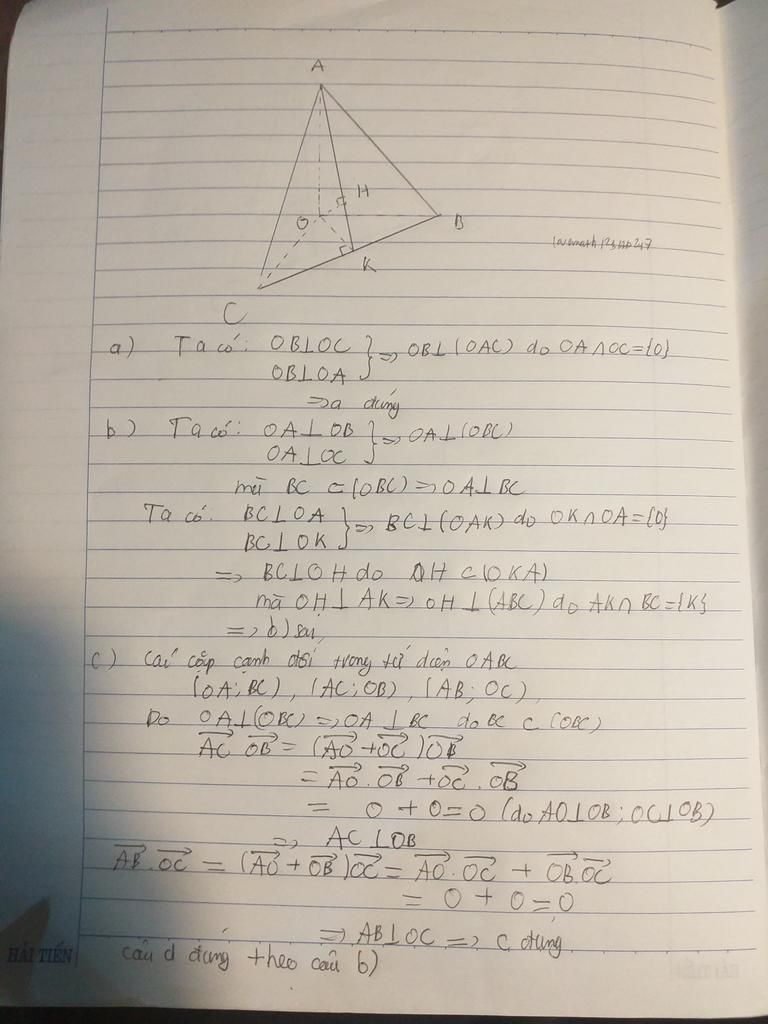 A
H
O
B
K
C
a) Ta có: OB⊥OC } => OB⊥(OAC) do OA∩OC={O}
OB⊥OA
=> a đúng
b) Ta có: OA⊥OB } => OA⊥(OBC)
OA⊥OC
mà BC ⊂ (OBC) => OA⊥BC
Ta có: BC⊥OA } => BC⊥(OAK) do OK∩OA={O}
BC⊥OK
=> BC⊥OH do OH ⊂ (OKA)
mà OH⊥AK => OH⊥(ABC) do AK∩BC={K}
=> b) sai
c) Các cặp cạnh đối trong tứ diện OABC
(OA; BC), (AC; OB), (AB; OC)
Do OA⊥(OBC) => OA⊥BC do BC ⊂ (OBC)
AC→ OB→ = (AO→ + OC→) OB→
= AO→ . OB→ + OC→ . OB→
= 0 + 0 = 0 (do AO⊥OB; OC⊥OB)
=> AC⊥OB
AB→ . OC→ = (AO→ + OB→) OC→ = AO→ . OC→ + OB→ . OC→
= 0 + 0 = 0
=> AB⊥OC => c đúng
HẢI TIẾN
câu d đúng theo câu b)